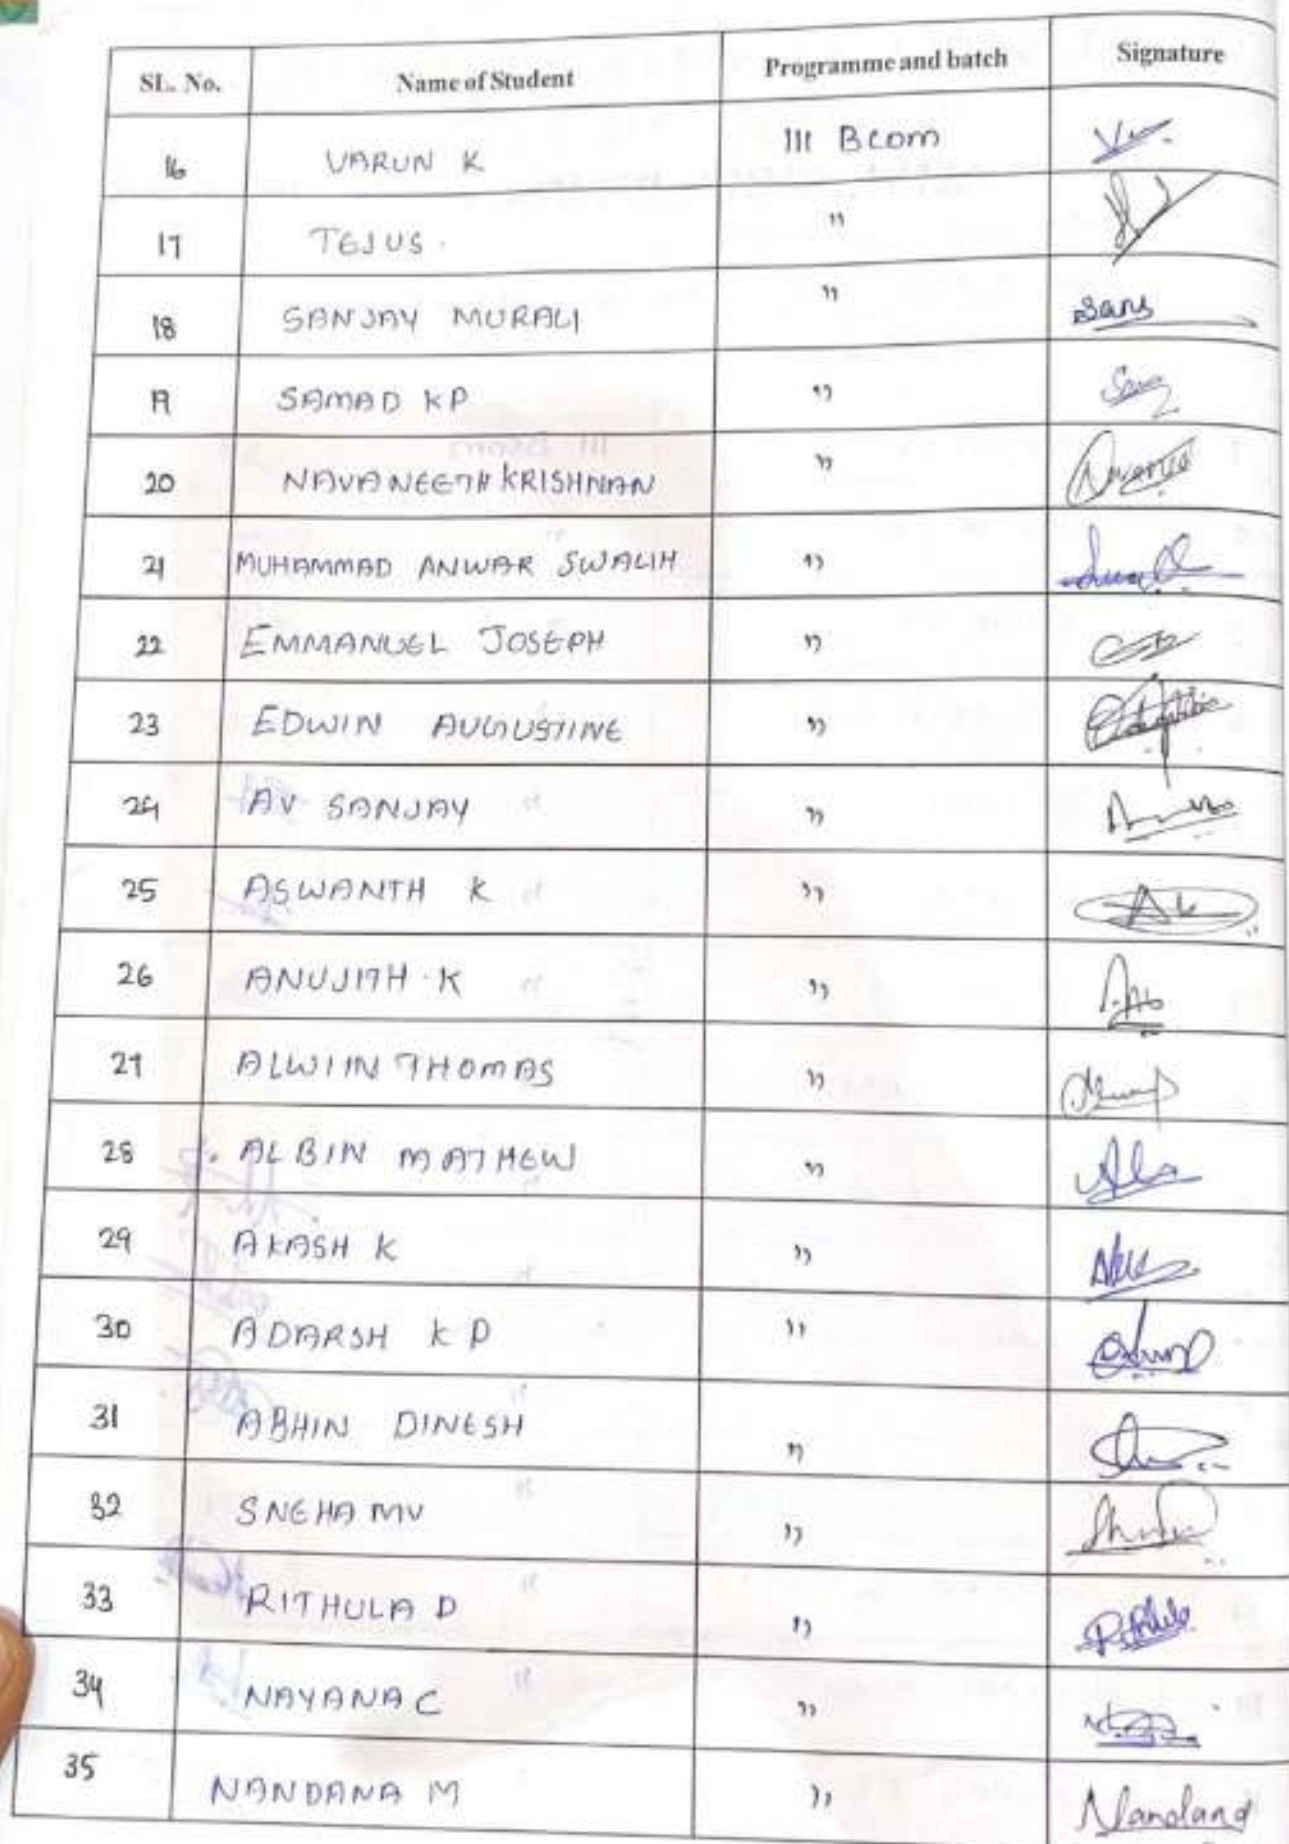 SL. No. Name of Student Programme and batch Signature
16 VARUN K III BCom
17 TEJUS. "
18 SANJAY MURALI " Sans
19 SAMAD KP "
20 NAVANEETH KRISHNAN "
21 MUHAMMAD ANWAR SWALIH "
22 EMMANUEL JOSEPH "
23 EDWIN AUGUSTINE "
24 AV SANJAY "
25 ASWANTH K "
26 ANUJITH K "
27 ALWIIN THOMAS "
28 ALBIN MATHEW "
29 AKASH K "
30 ADARSH K P "
31 ABHIN DINESH "
32 SNEHA MV "
33 RITHULA D "
34 NAYANA C "
35 NANDANA M "